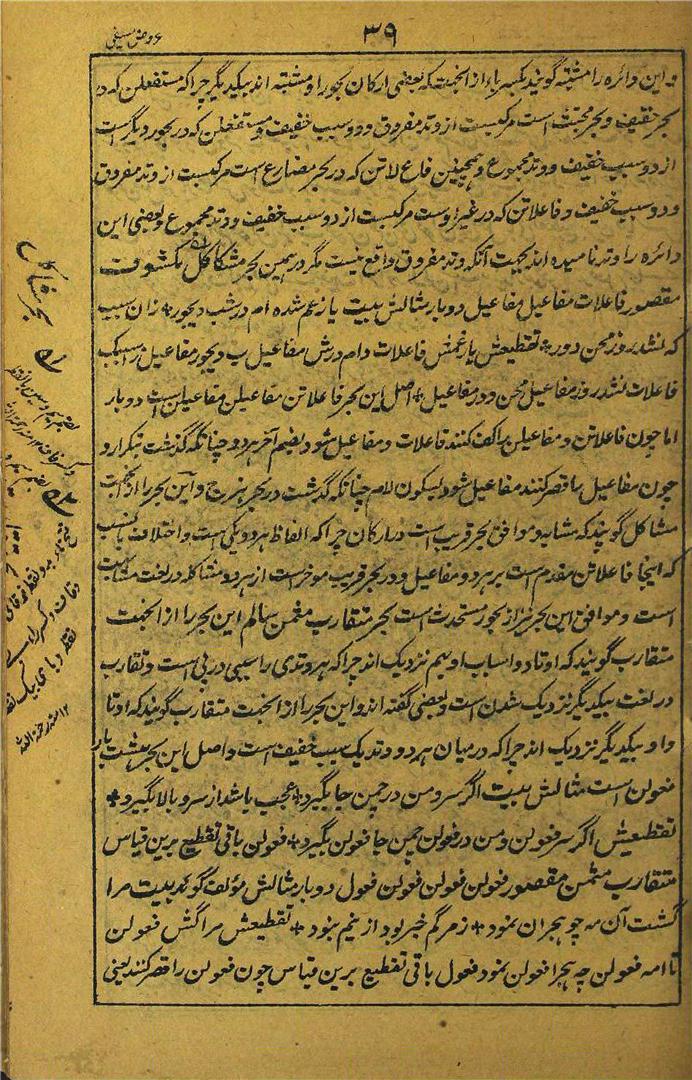 عروض سیفی
۳۹
و این دائره را مشتبه گویند بکسر باء از انجهت که بعضی ارکان بحور او مشتبه اند بیکدیگر چرا که مستفعلن که در
بحر خفیف و بحر مجتث است مرکبست از وتد مفروق و دو سبب خفیف و مستفعلن که در بحور دیگر است
از دو سبب خفیف و وتد مجموع و همچنین فاع لاتن که در بحر مضارع است مرکبست از وتد مفروق
و دو سبب خفیف و فاعلاتن که در غیر اوست مرکبست از دو سبب خفیف و وتد مجموع و بعضی این
دائره را وتد نامیده اند بجهت آنکه وتد مفروق واقع نیست مگر درهمین بحر مشاکل مکفوف
مقصور فاعلات مفاعیل مفاعیل دو بار مثالش بیت یار غم شده ام در شب دیجور + زان سبب
که نشد روز محن دور + تقطیعش یار غمش فاعلات دام درش مفاعیل ب دیجور مفاعیل زا سبک
فاعلات نشد روز مفاعیل محن دور مفاعیل + اصل این بحر فاعلاتن مفاعیلن مفاعیلن است دو بار
اما چون فاعلاتن و مفاعیلن را کف کنند فاعلات و مفاعیل شود بضم آخر هر دو چنانکه گذشت بتکرار و
چون مفاعیل را قصر کنند مفاعیل شود بسکون لام چنانکه گذشت در بحر هزج و این بحر را از انجهت
مشاکل گویند که مشابه و موافق بحر قریب است در ارکان چرا که الفاظ هر دو یکی است و اختلاف بانست
که اینجا فاعلاتن مقدم است بر هر دو مفاعیل و در بحر قریب موخر است از هر دو و مشاکله در لغت مشابهت
است و موافق این بحر نیز از بحور مستحدث است بحر متقارب مثمن سالم این بحر را از انجهت
متقارب گویند که اوتاد و اسباب او بهم نزدیک اند چرا که هر وتدی را سببی در پی است و تقارب
در لغت بیکدیگر نزدیک شدن است و بعضی گفته اند و این بحر را از انجهت متقارب گویند که اوتا
د او بیکدیگر نزدیک اند چرا که در میان هر دو وتد یک سبب خفیف است و اصل این بحر هشت بار
فعولن است مثالش بیت اگر سرو من در چمن جا بگیرد + عجب باشد از سرو بالا بگیرد +
تقطیعش اگر سر فعولن و من در فعولن چمن جا فعولن بگیرد + فعولن باقی تقطیع برین قیاس
متقارب مثمن مقصور فعولن فعولن فعولن فعول دو بار مثالش مؤلف گوید بیت مرا
گشت آن مه چو هجران نمود + ز مرگم خبر بود از نیم بود + تقطیعش مرا گش فعولن
تا امه فعولن چه هجرا فعولن نمود فعول باقی تقطیع برین قیاس چون فعولن را قصر کنند یعنی
بحر مشاکل